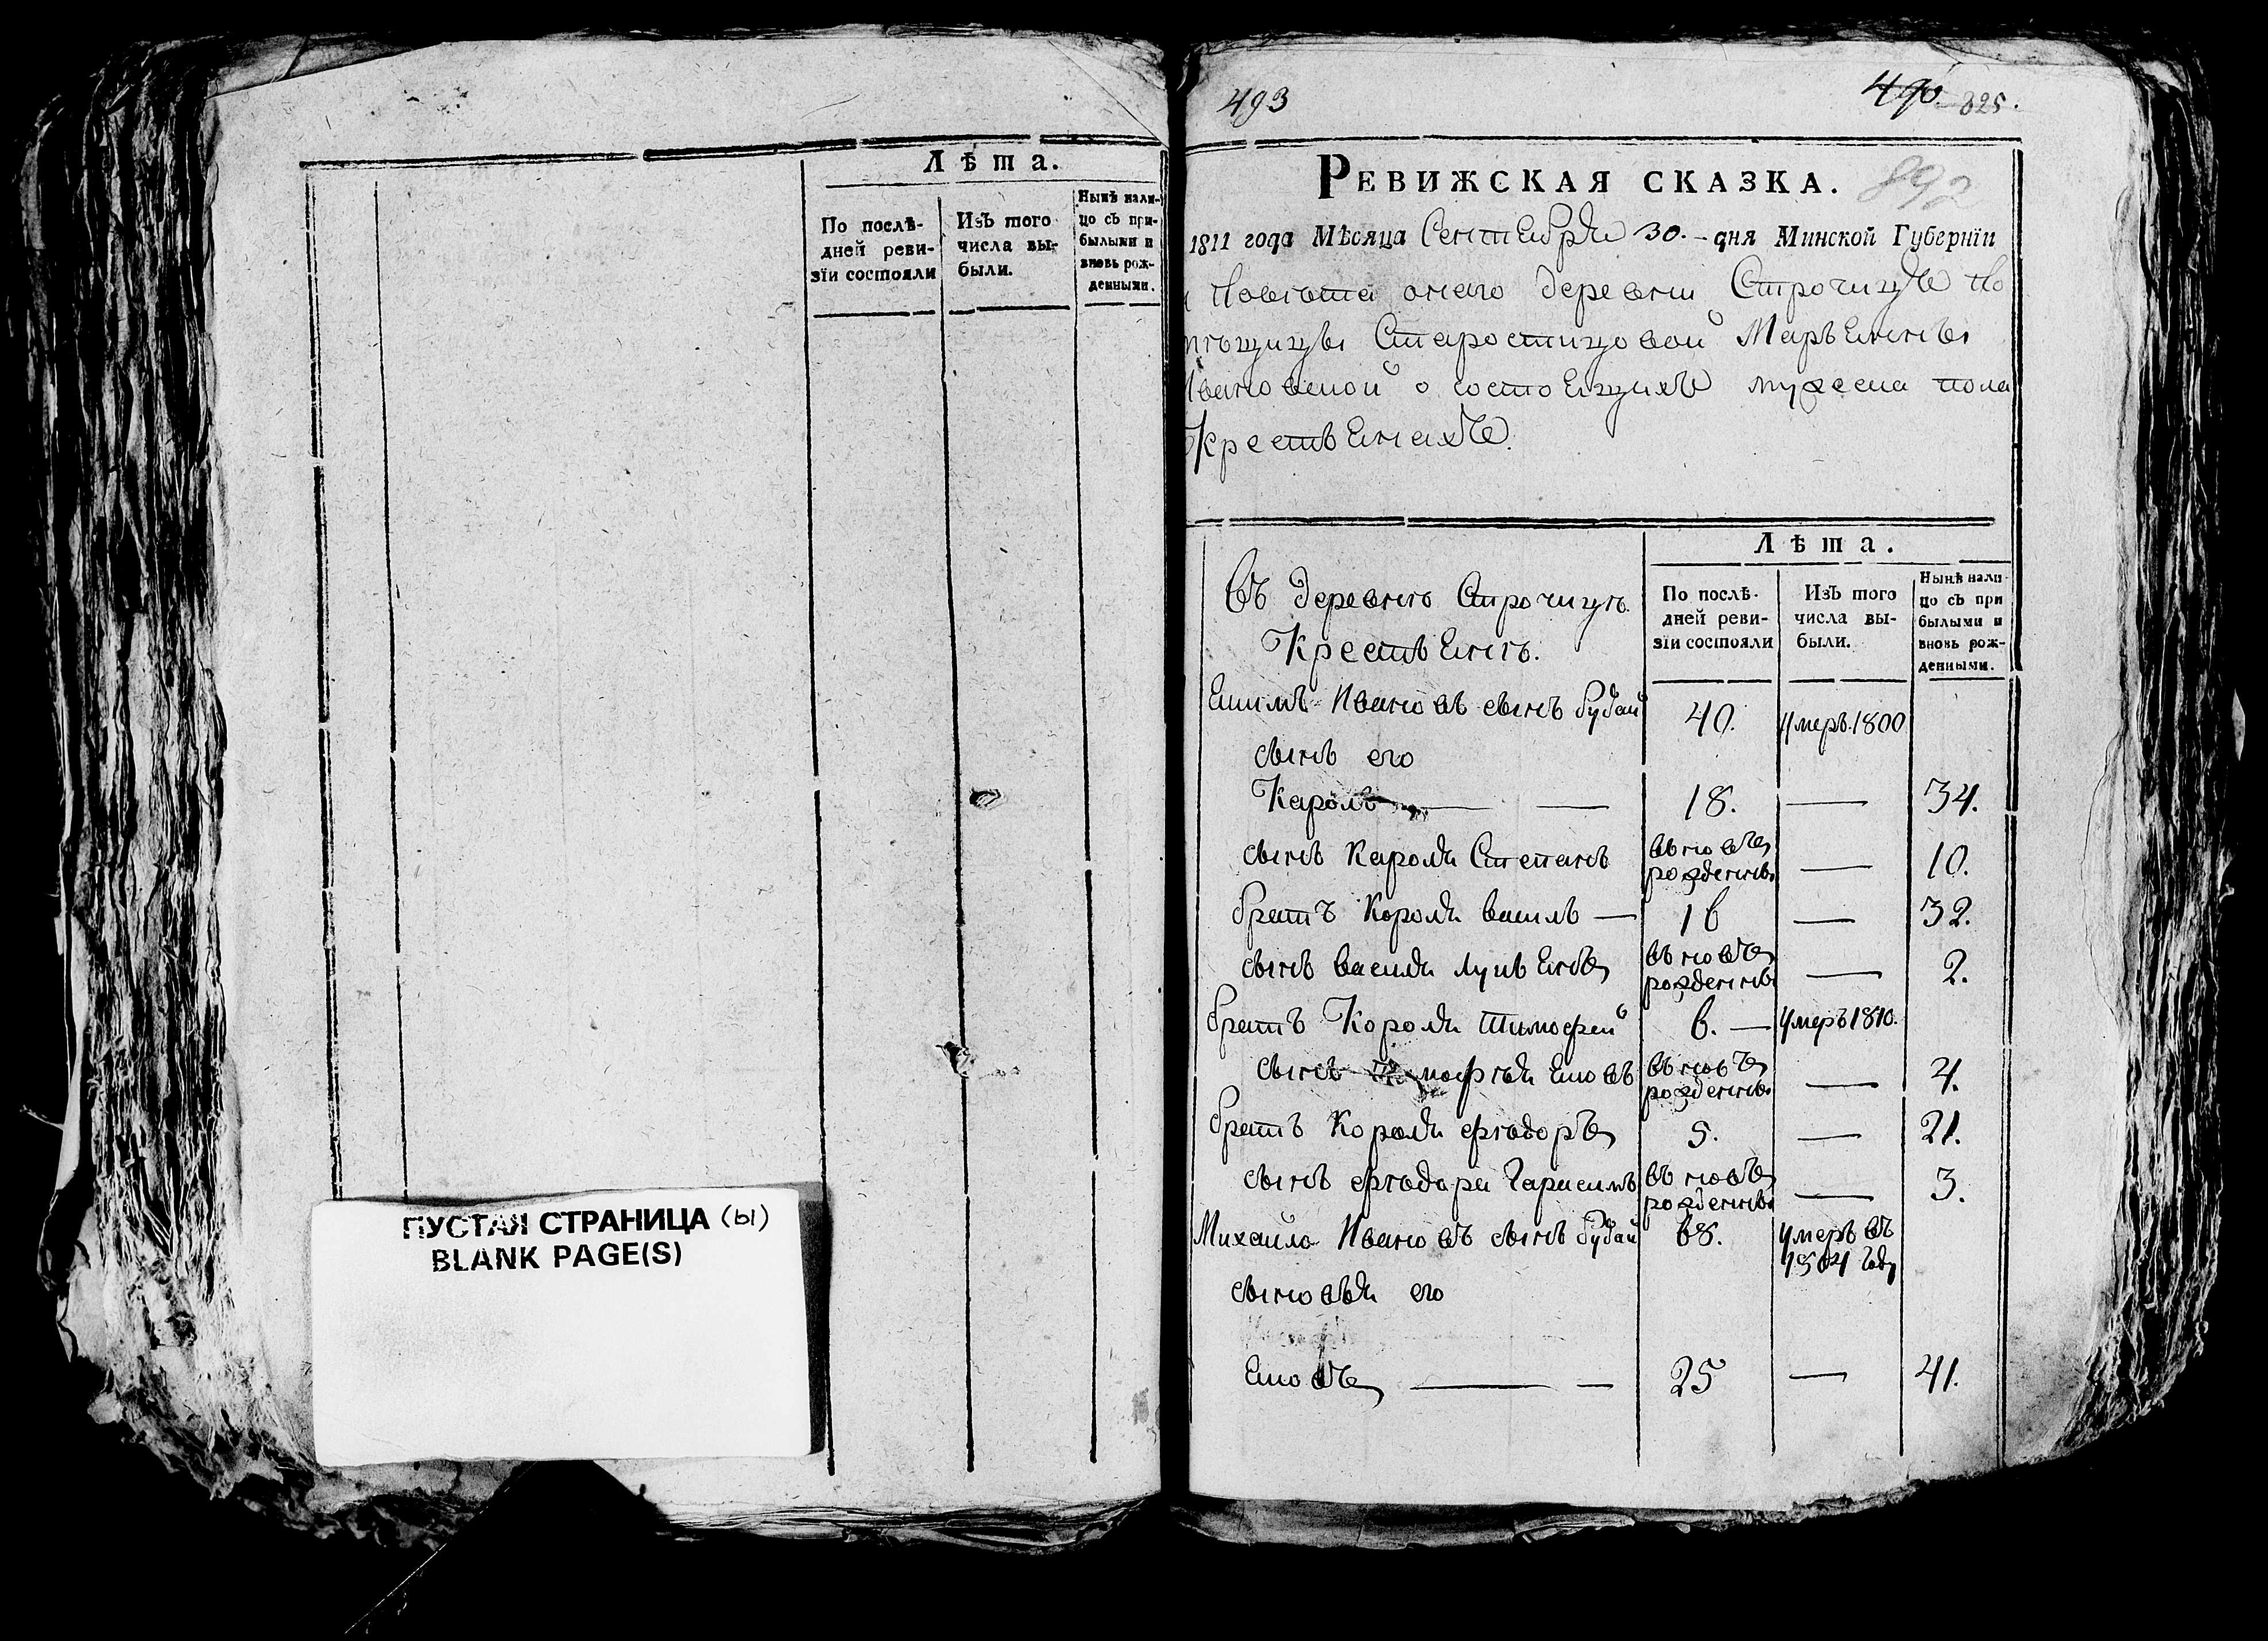 Лѣта.
По послѣ-
дней реви-
зїи состояли
Изъ того
числа вы-
были.
Нынѣ нали-
цо съ при-
былыми и
вновь рож-
денными.
ПУСТАЯ СТРАНИЦА (ы)
BLANK PAGE(S)
493
490. 325.
892
РЕВИЖСКАЯ СКАЗКА.
1811 года Мѣсяца Сентебря 30. дня Минской Губернїи
Повѣта оного деревни Строчицъ По
мѣщицы Старостицовой Марьенны
Ивановной о состоещихъ мужеска пола
Крестьенахъ
Лѣта.
Въ деревнѣ Строчицъ
Крестьенѣ.
По послѣ-
дней реви-
зїи состояли
Изъ того
числа вы-
были.
Нынѣ нали-
цо съ при
былыми и
вновь рож-
денными.
Ивановъ сынъ будай 40. умеръ 1800
сынъ его
Кароль 18. — 34.
сынъ Кароля Степанъ вьновъ рожденны — 10.
братъ Короля василь — 16 — 32.
сынъ василя лукьенъ вьновъ рожденны — 2.
братъ Короля Тимофей 6. — умеръ 1810.
сынъ Тимофѣя Еновъ вьновъ рожденны — 4.
братъ Короля фѣдоръ 5. — 21.
сынъ фѣдора Гарасимъ вьновъ рожденны — 3.
Михайло Ивановъ сынъ будай 68. умеръ въ 1804 году
сыновья его
Еновъ — — 25 — 41.